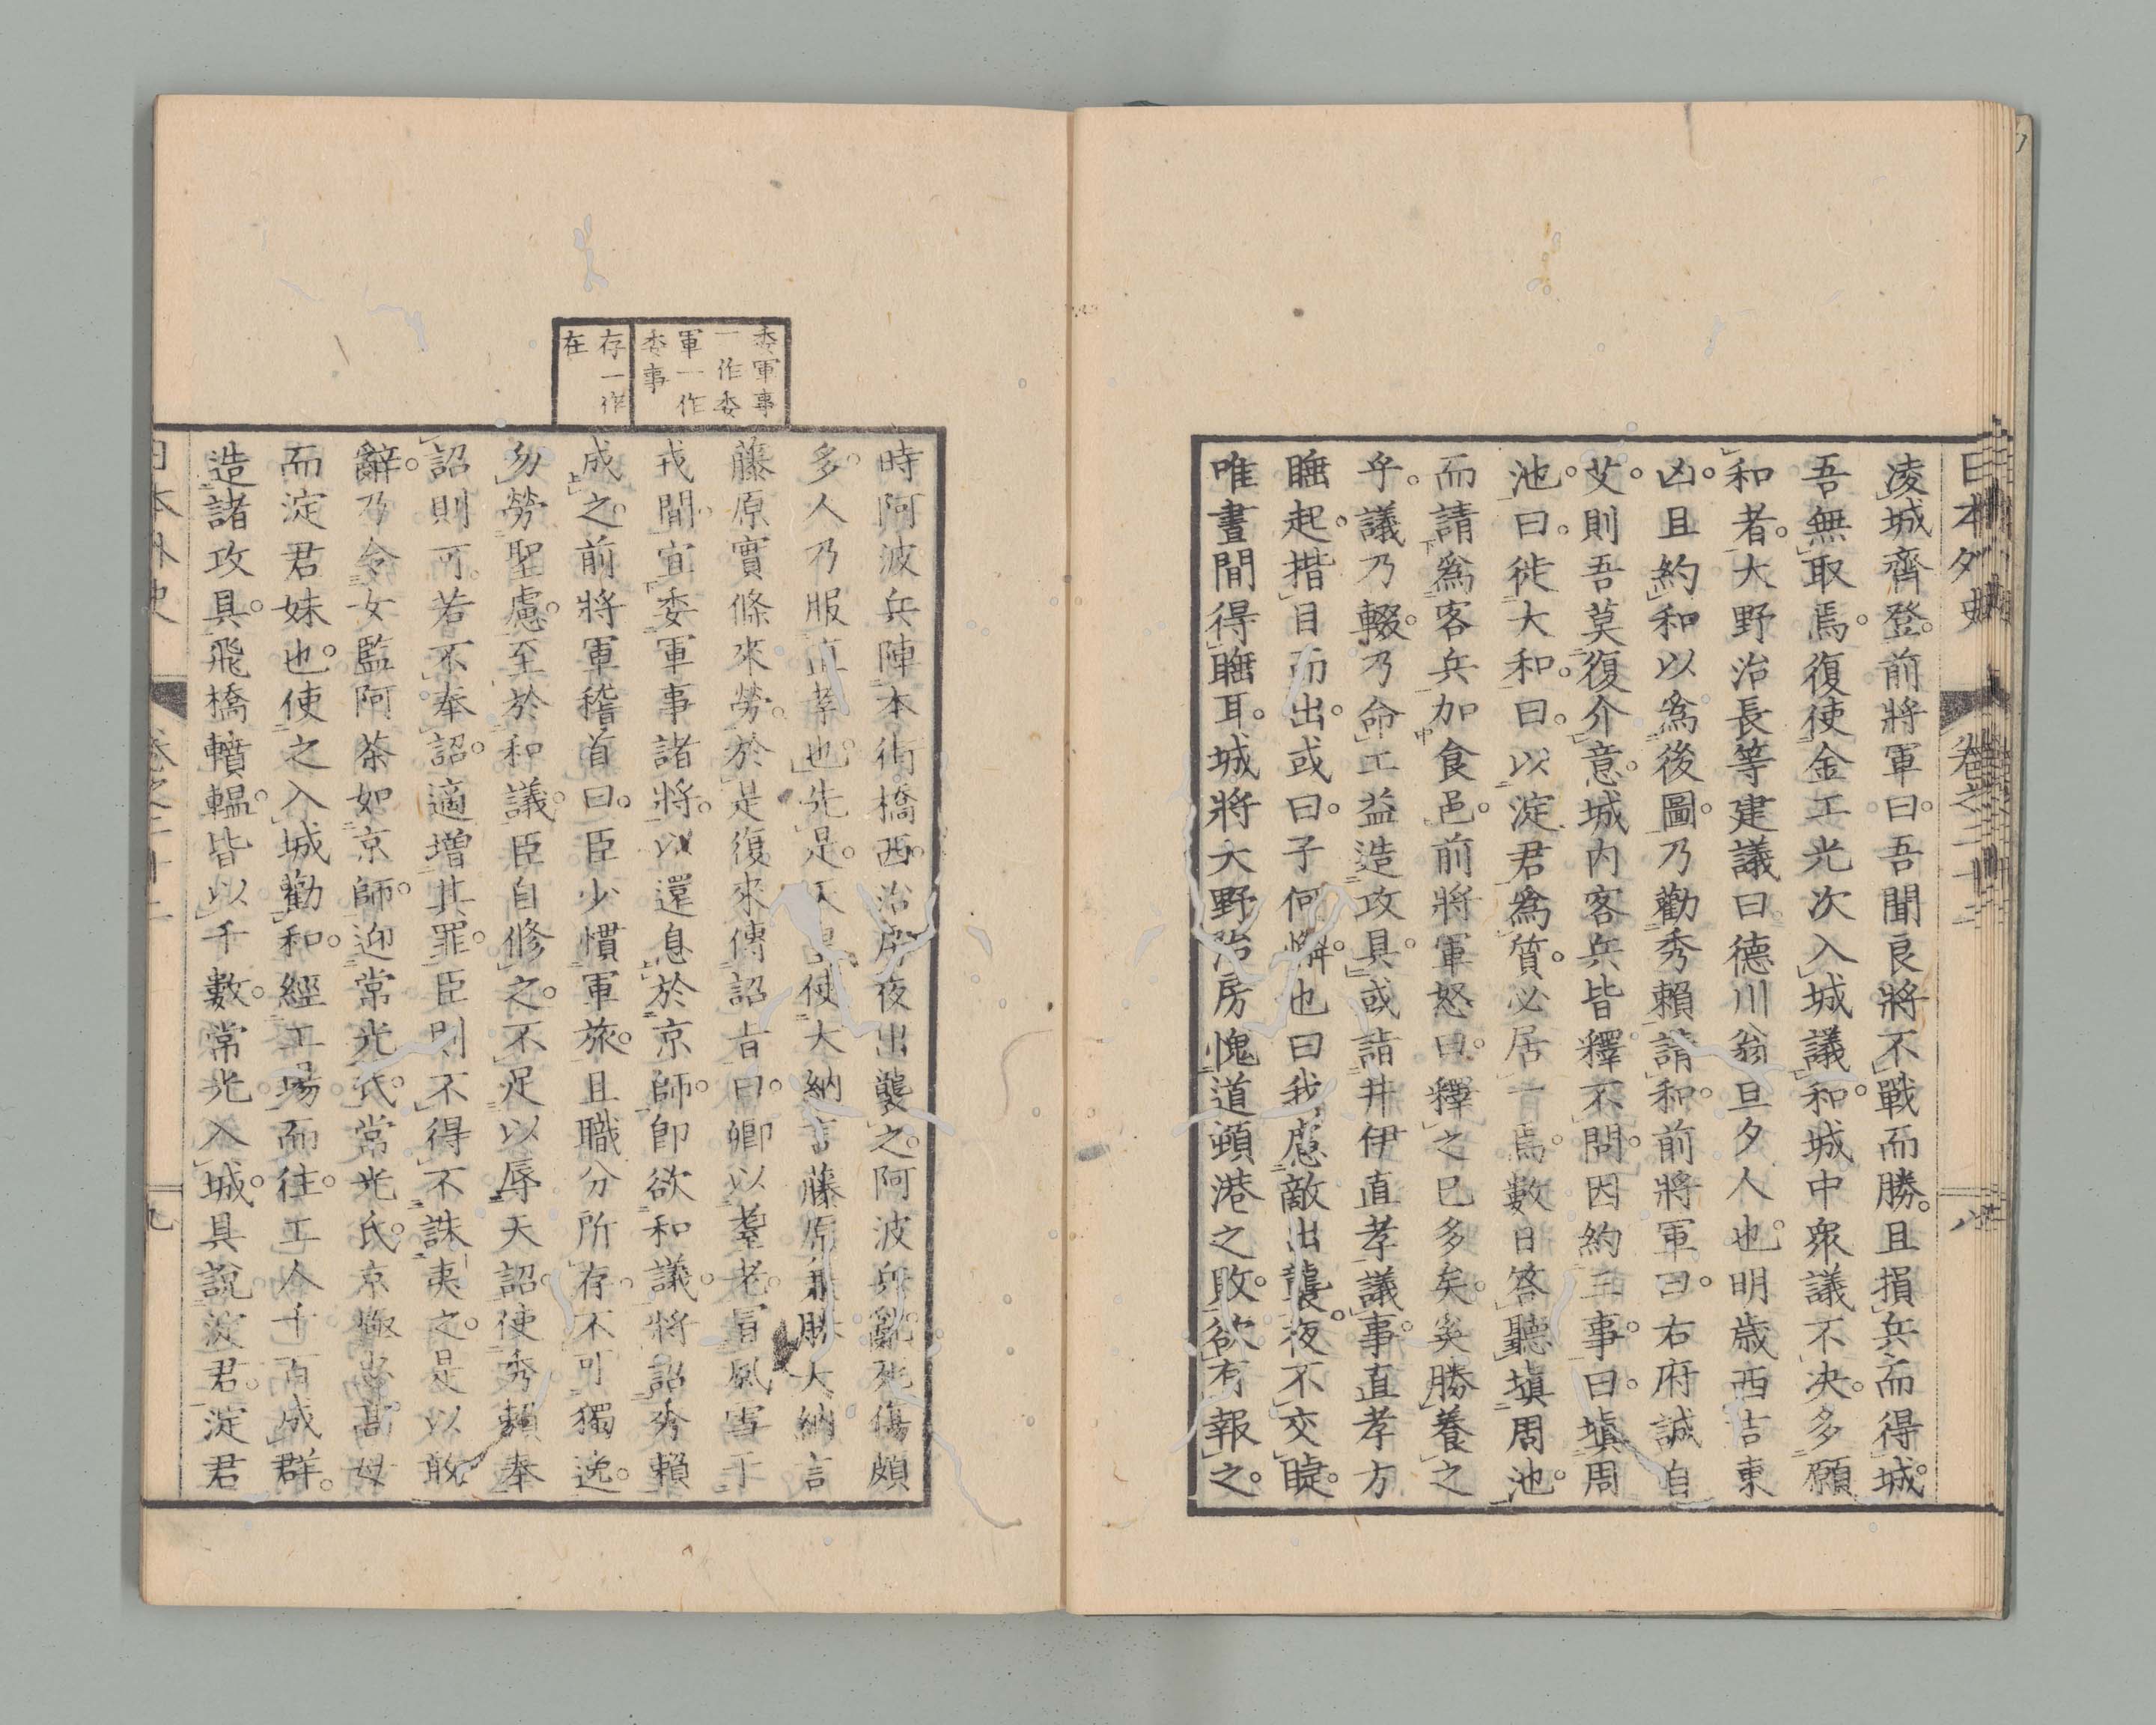 日本外史
卷之二十二
八
凌城齊登。前將軍曰。吾聞良將不戰而勝。且損兵而得城。
吾無取焉。復使金工光次入城議和。城中衆議不決。多願
和者。大野治長等建議曰。德川翁旦夕人也。明歲西吉東
凶。且約和以爲後圖。乃勸秀賴請和。前將軍曰。右府誠自
艾。則吾莫復介意。城内客兵皆釋不問。因約三事。曰。塡周
池。曰。徙大和。曰。以淀君爲質。必居一焉。數日答聽塡周池。
而請爲客兵加食邑。前將軍怒曰。釋之已多矣。奚勝養之
乎。議乃輟。乃命工益造攻具。或詣井伊直孝議事。直孝方
睡起。揩目而出。或曰。子何懈也曰我慮敵出襲。夜不交睫。
唯晝間得睡耳。城將大野治房愧道頓港之敗。欲有報之。
委軍事
一作委
軍一作
委事
存一作
在
時阿波兵陣本街橋西。治房夜出襲之。阿波兵亂。死傷頗
多。人乃服直孝也。先是。天皇使大納言藤原兼勝大納言
藤原實條來勞。於是復來傳詔旨曰。卿以耋老。冒風雪于
戎間。宜委軍事諸將。以還息於京師。卽欲和議。將詔秀賴
成之。前將軍稽首曰。臣少慣軍旅。且職分所存。不可獨逸。
勿勞聖慮。至於和議。臣自修之。不足以辱天詔。使秀賴奉
詔則可。若不奉詔。適增其罪。臣則不得不誅夷之。是以敢
辭。乃令女監阿茶如京師。迎常光氏。常光氏。京極忠高母
而淀君妹也。使之入城勸和。經工場而往。工人千百成群。
造諸攻具。飛橋轒轀。皆以千數。常光入城。具說淀君。淀君
日本外史
卷之二十二
九